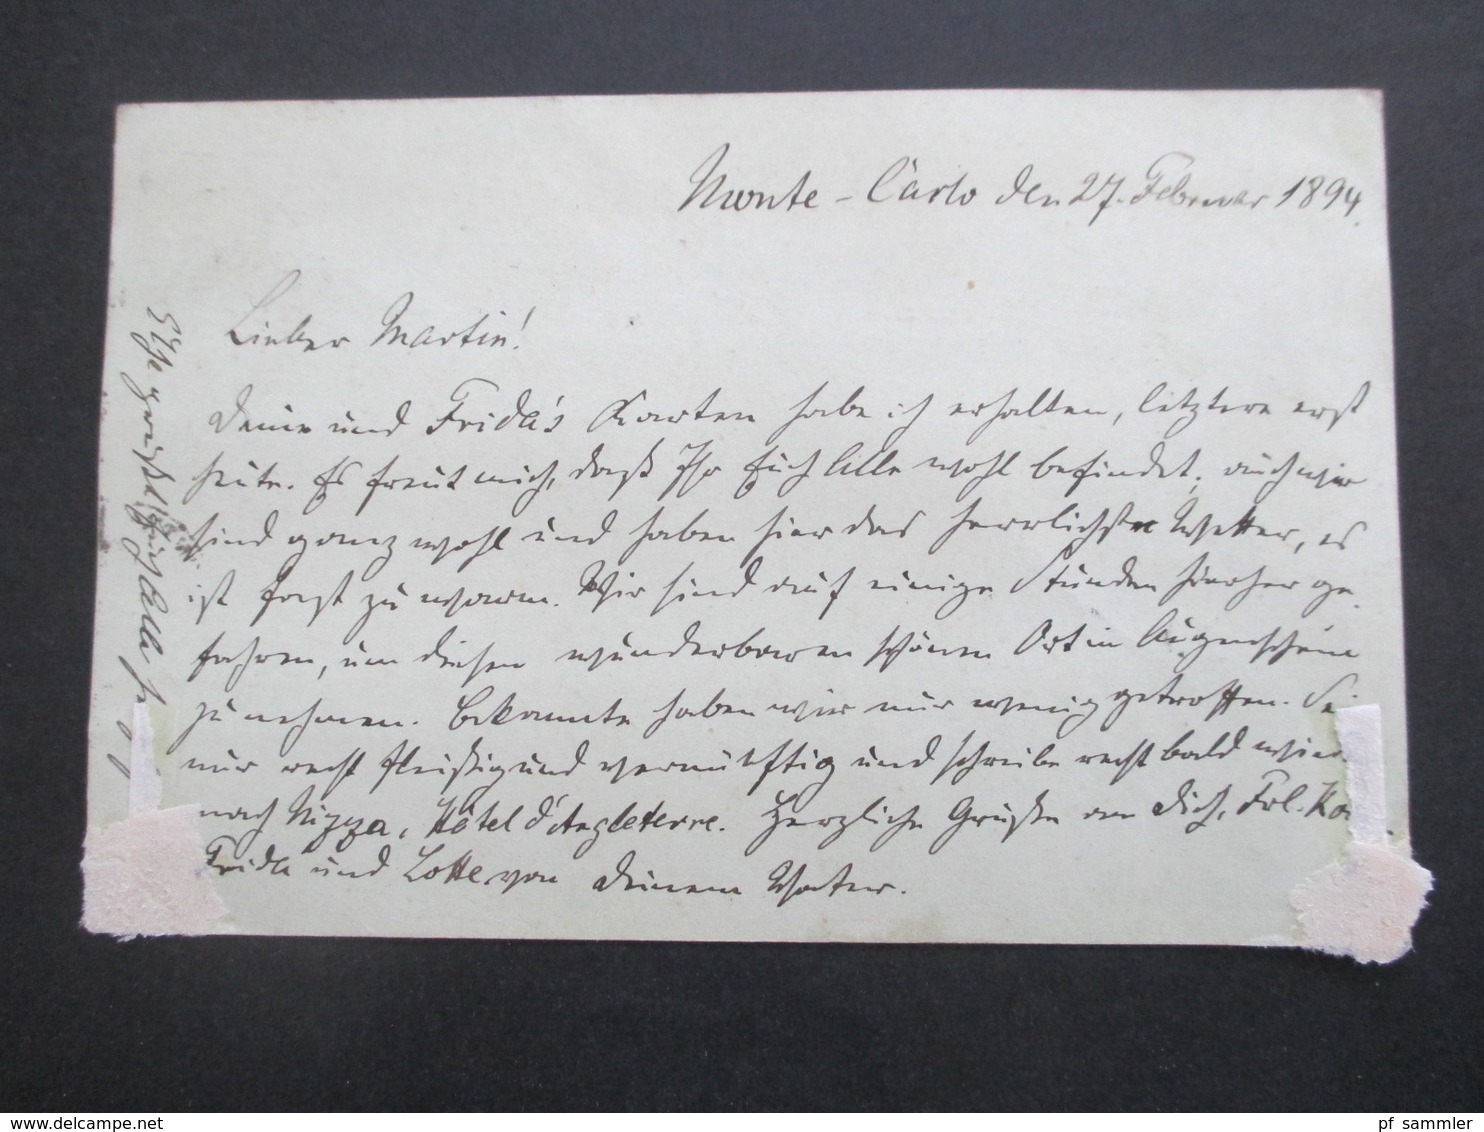 Monte-Carlo den 27. Februar 1894.
Lieber Martin!
Deine und Frida's Karten habe ich erhalten, letztere erst
heute. Es freut mich, daß Ihr Euch Alle wohl befindet; auch wir
sind ganz wohl und haben hier das herrlichste Wetter, es
ist fast zu warm. Wir sind auf einige Stunden hierher ge-
fahren, um diesen wunderbaren schönen Ort in Augenschein
zu nehmen. Bekannte haben wir nur wenig getroffen. Sei
nur recht fleißig und vernünftig und schreibe recht bald wieder
nach Nizza, Hôtel d'Angleterre. Herzliche Grüße an Dich, Frl.
Frida und Lotte von Deinem Vater.
grüßt Euch Alle
pf_sammler